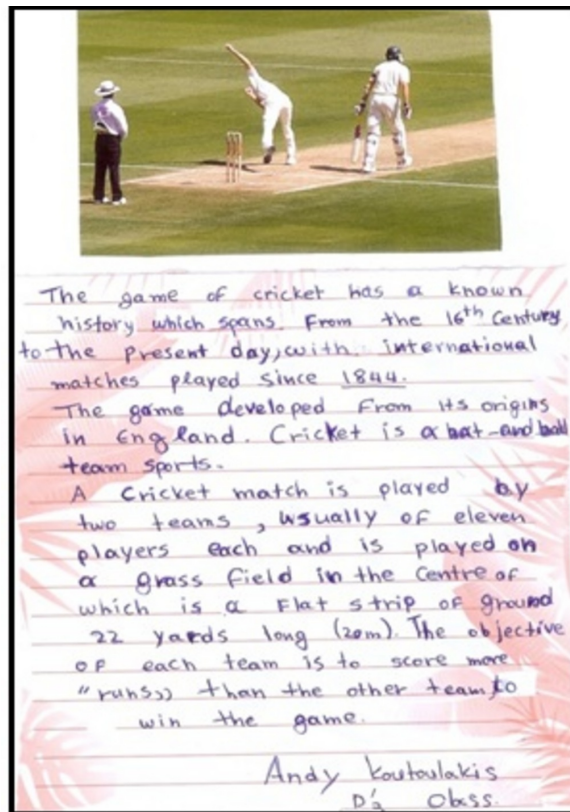 The game of cricket has a known
history which spans. From the 16th Century
to the present day, with international
matches played since 1844.
The game developed From its origins
in England. Cricket is a bat-and ball
team sports.
A Cricket match is played by
two teams, usually of eleven
players each and is played on
a grass field in the Centre of
which is a Flat strip of ground
22 yards long (20m). The objective
of each team is to score more
"runs,, than the other team, to
win the game.
Andy Koutoulakis
D'2 class